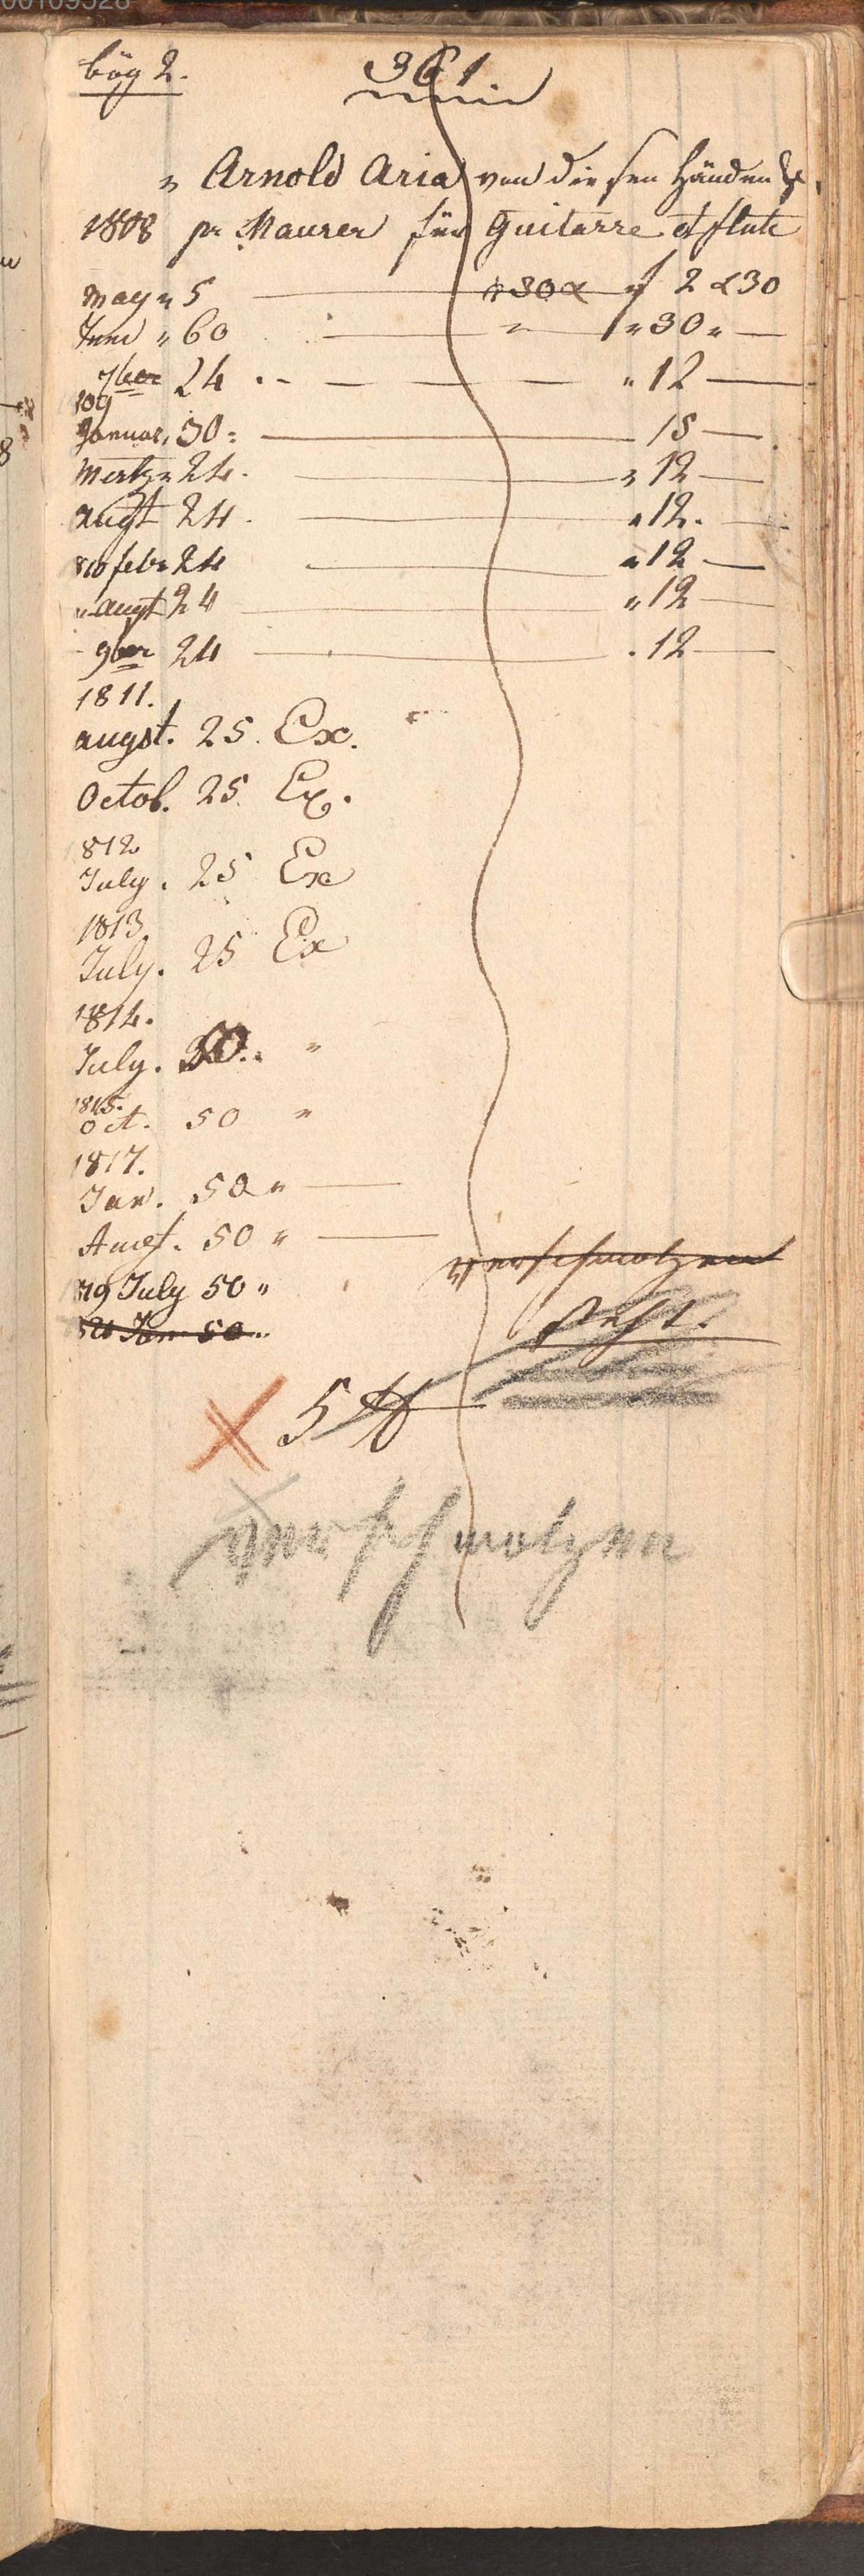 bög 2.
361
" Arnold Aria von diesen Händen &.
1808 pr Maurer für Guitarre et flute
May " 5 — a 30 x f 2 x 30
Juni " 60 — " — " 30 " —
7ber 24 — " 12 —
109
Januar, 30 = — 15 —
Mertz " 24 — " 12 —
augt 24 — " 12. —
810 feb: 24 — " 12 —
" augt 24 — " 12 —
9ber 24 — . 12 —
1811.
augst. 25. Ex.
Octob. 25 Ex.
812
July. 25 Ex
1813.
July. 25 Ex
1814.
July. 50.. "
1815.
Oct. 50 "
1817.
Jan. 50 " —
Augt. 50 " —
verschmolzen
819 July 50 "
820 Jan 50 "
5
verschmolzen